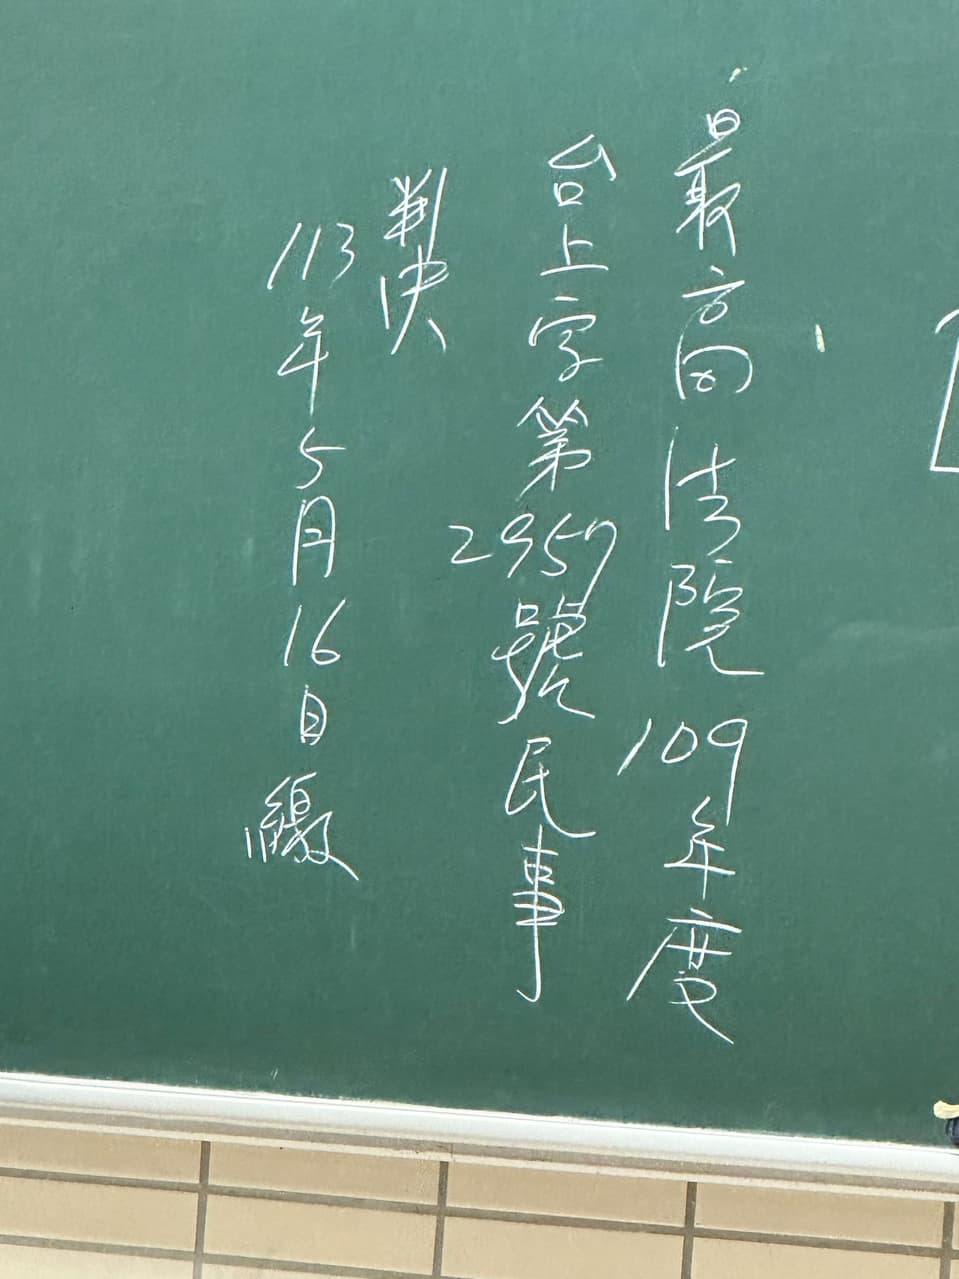 最高法院109年度
台上字第2957號民事
判決
113年5月16日繳